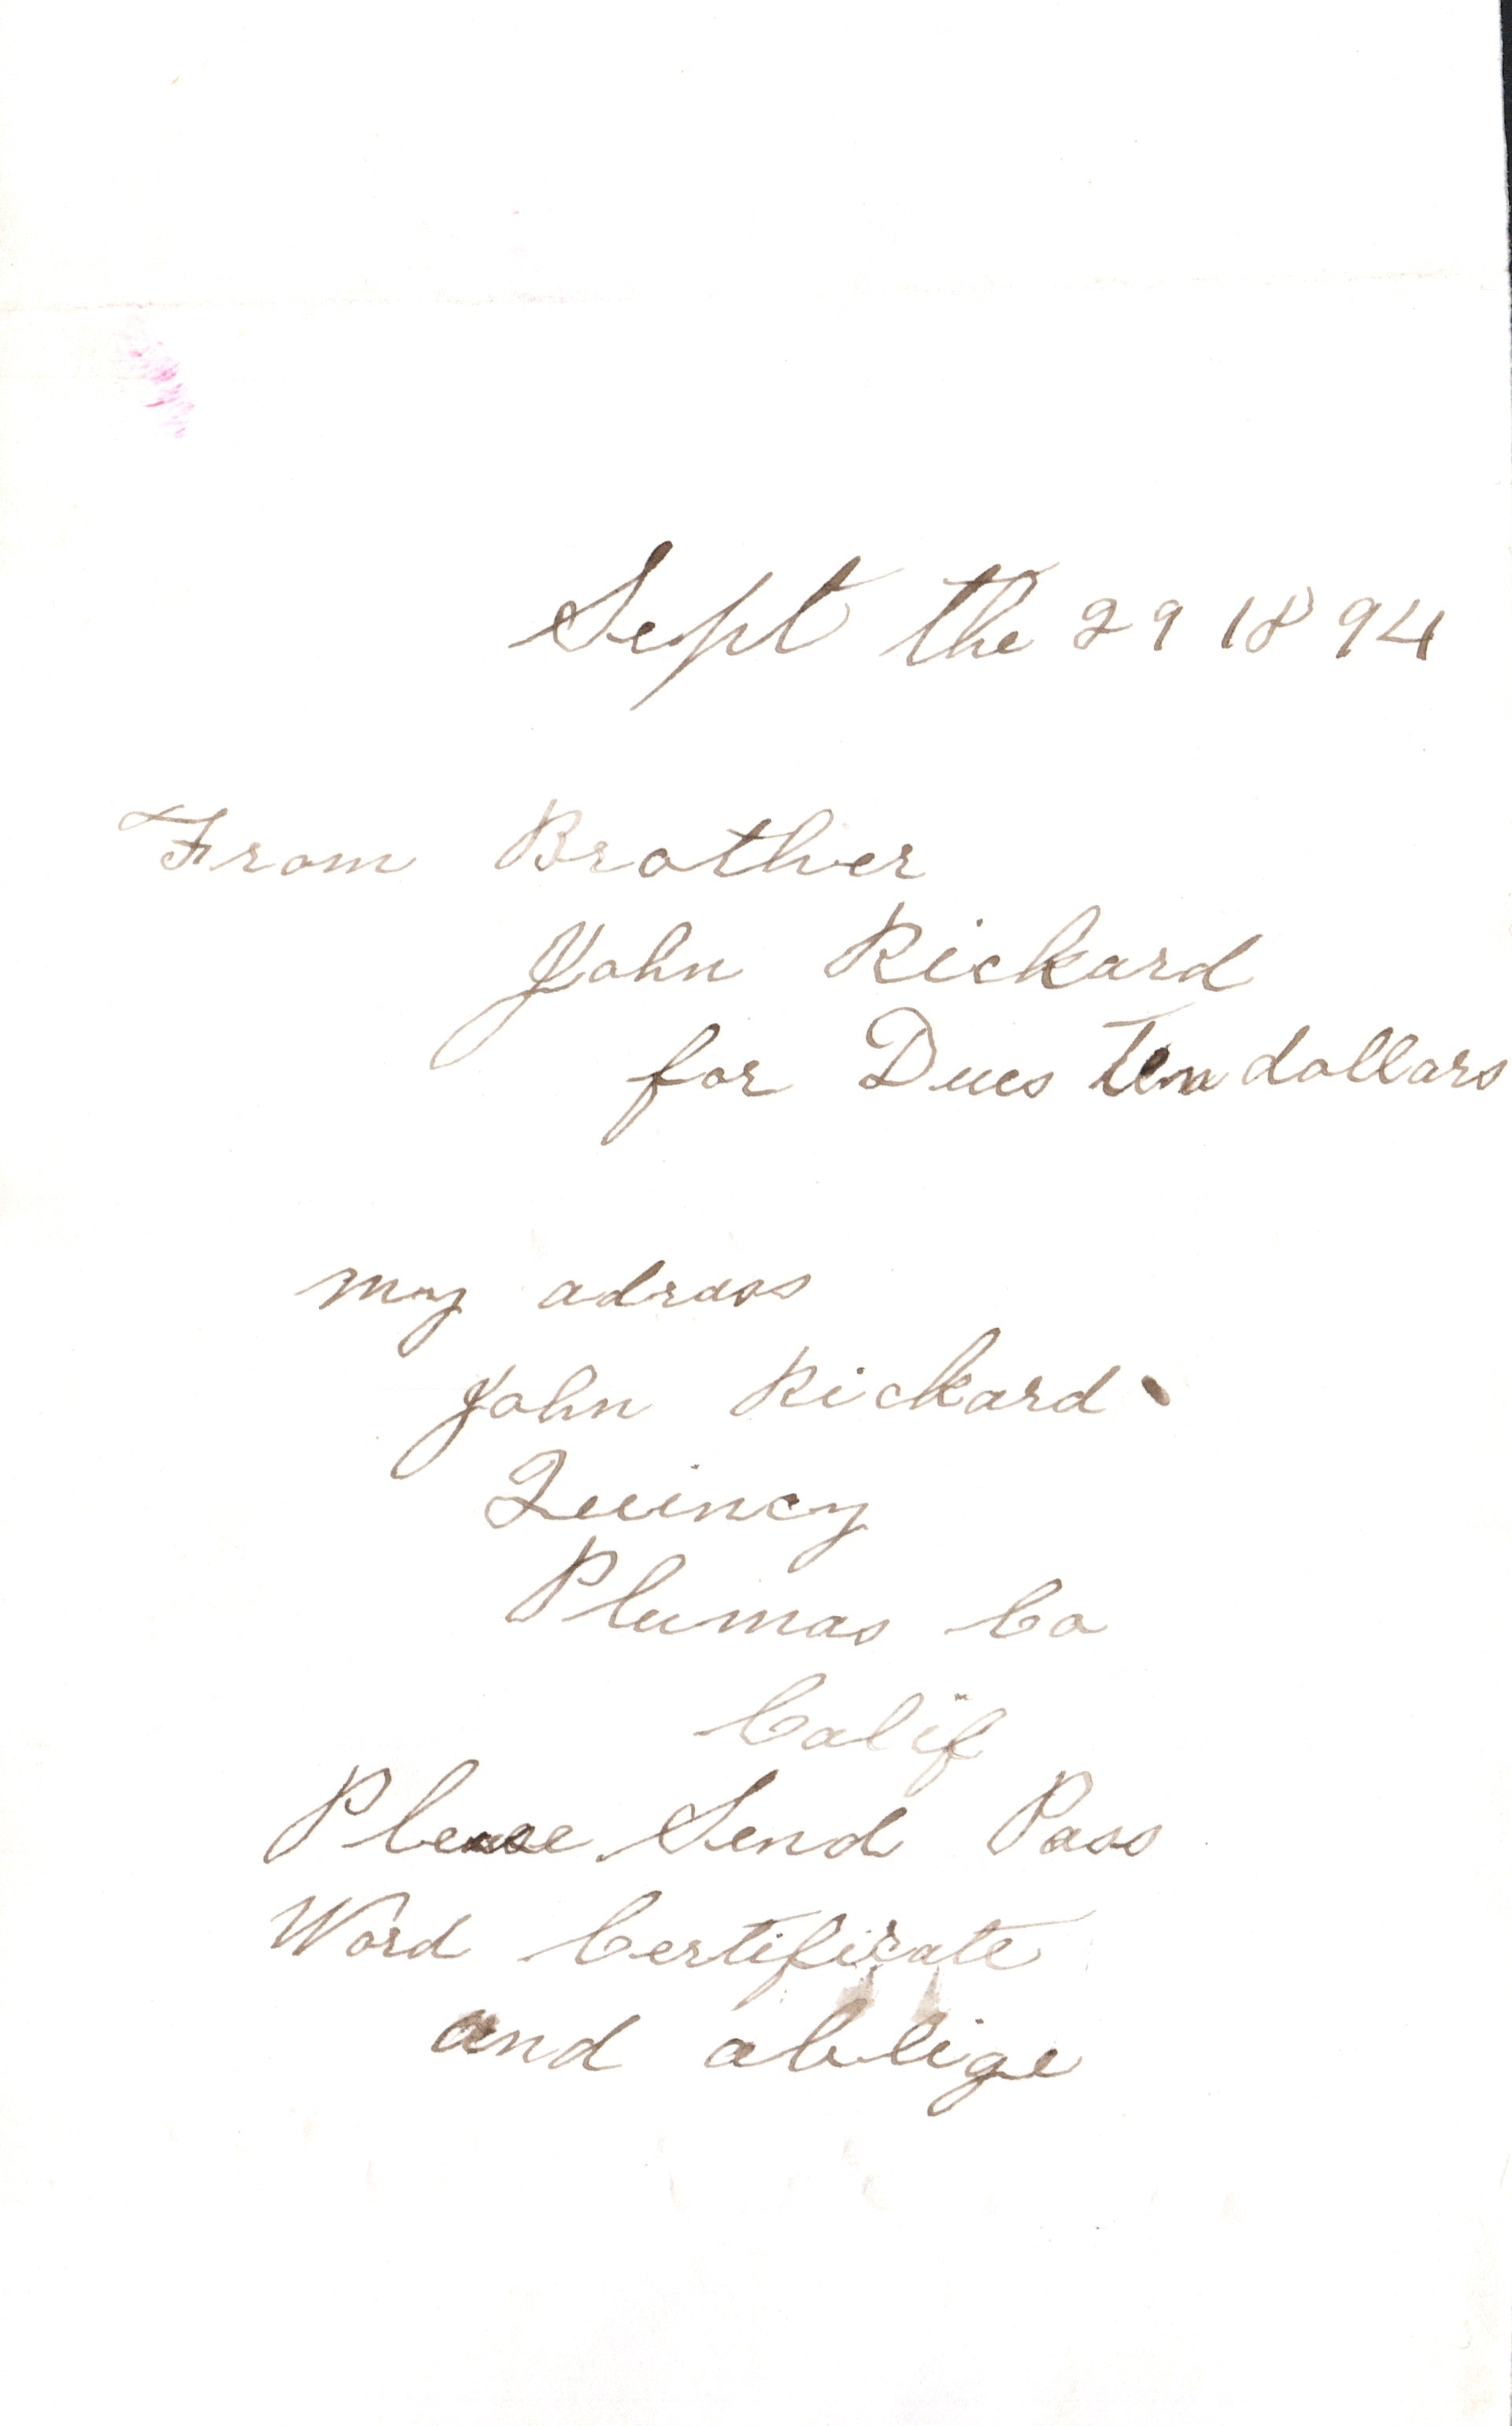 Sept the 29 1894
From Brother
John Rickard
for Dues Ten dollars
my adrass
John Rickard
Quincy
Plumas Co
Calif
Please Send Pass
Word Certificate
and oblige